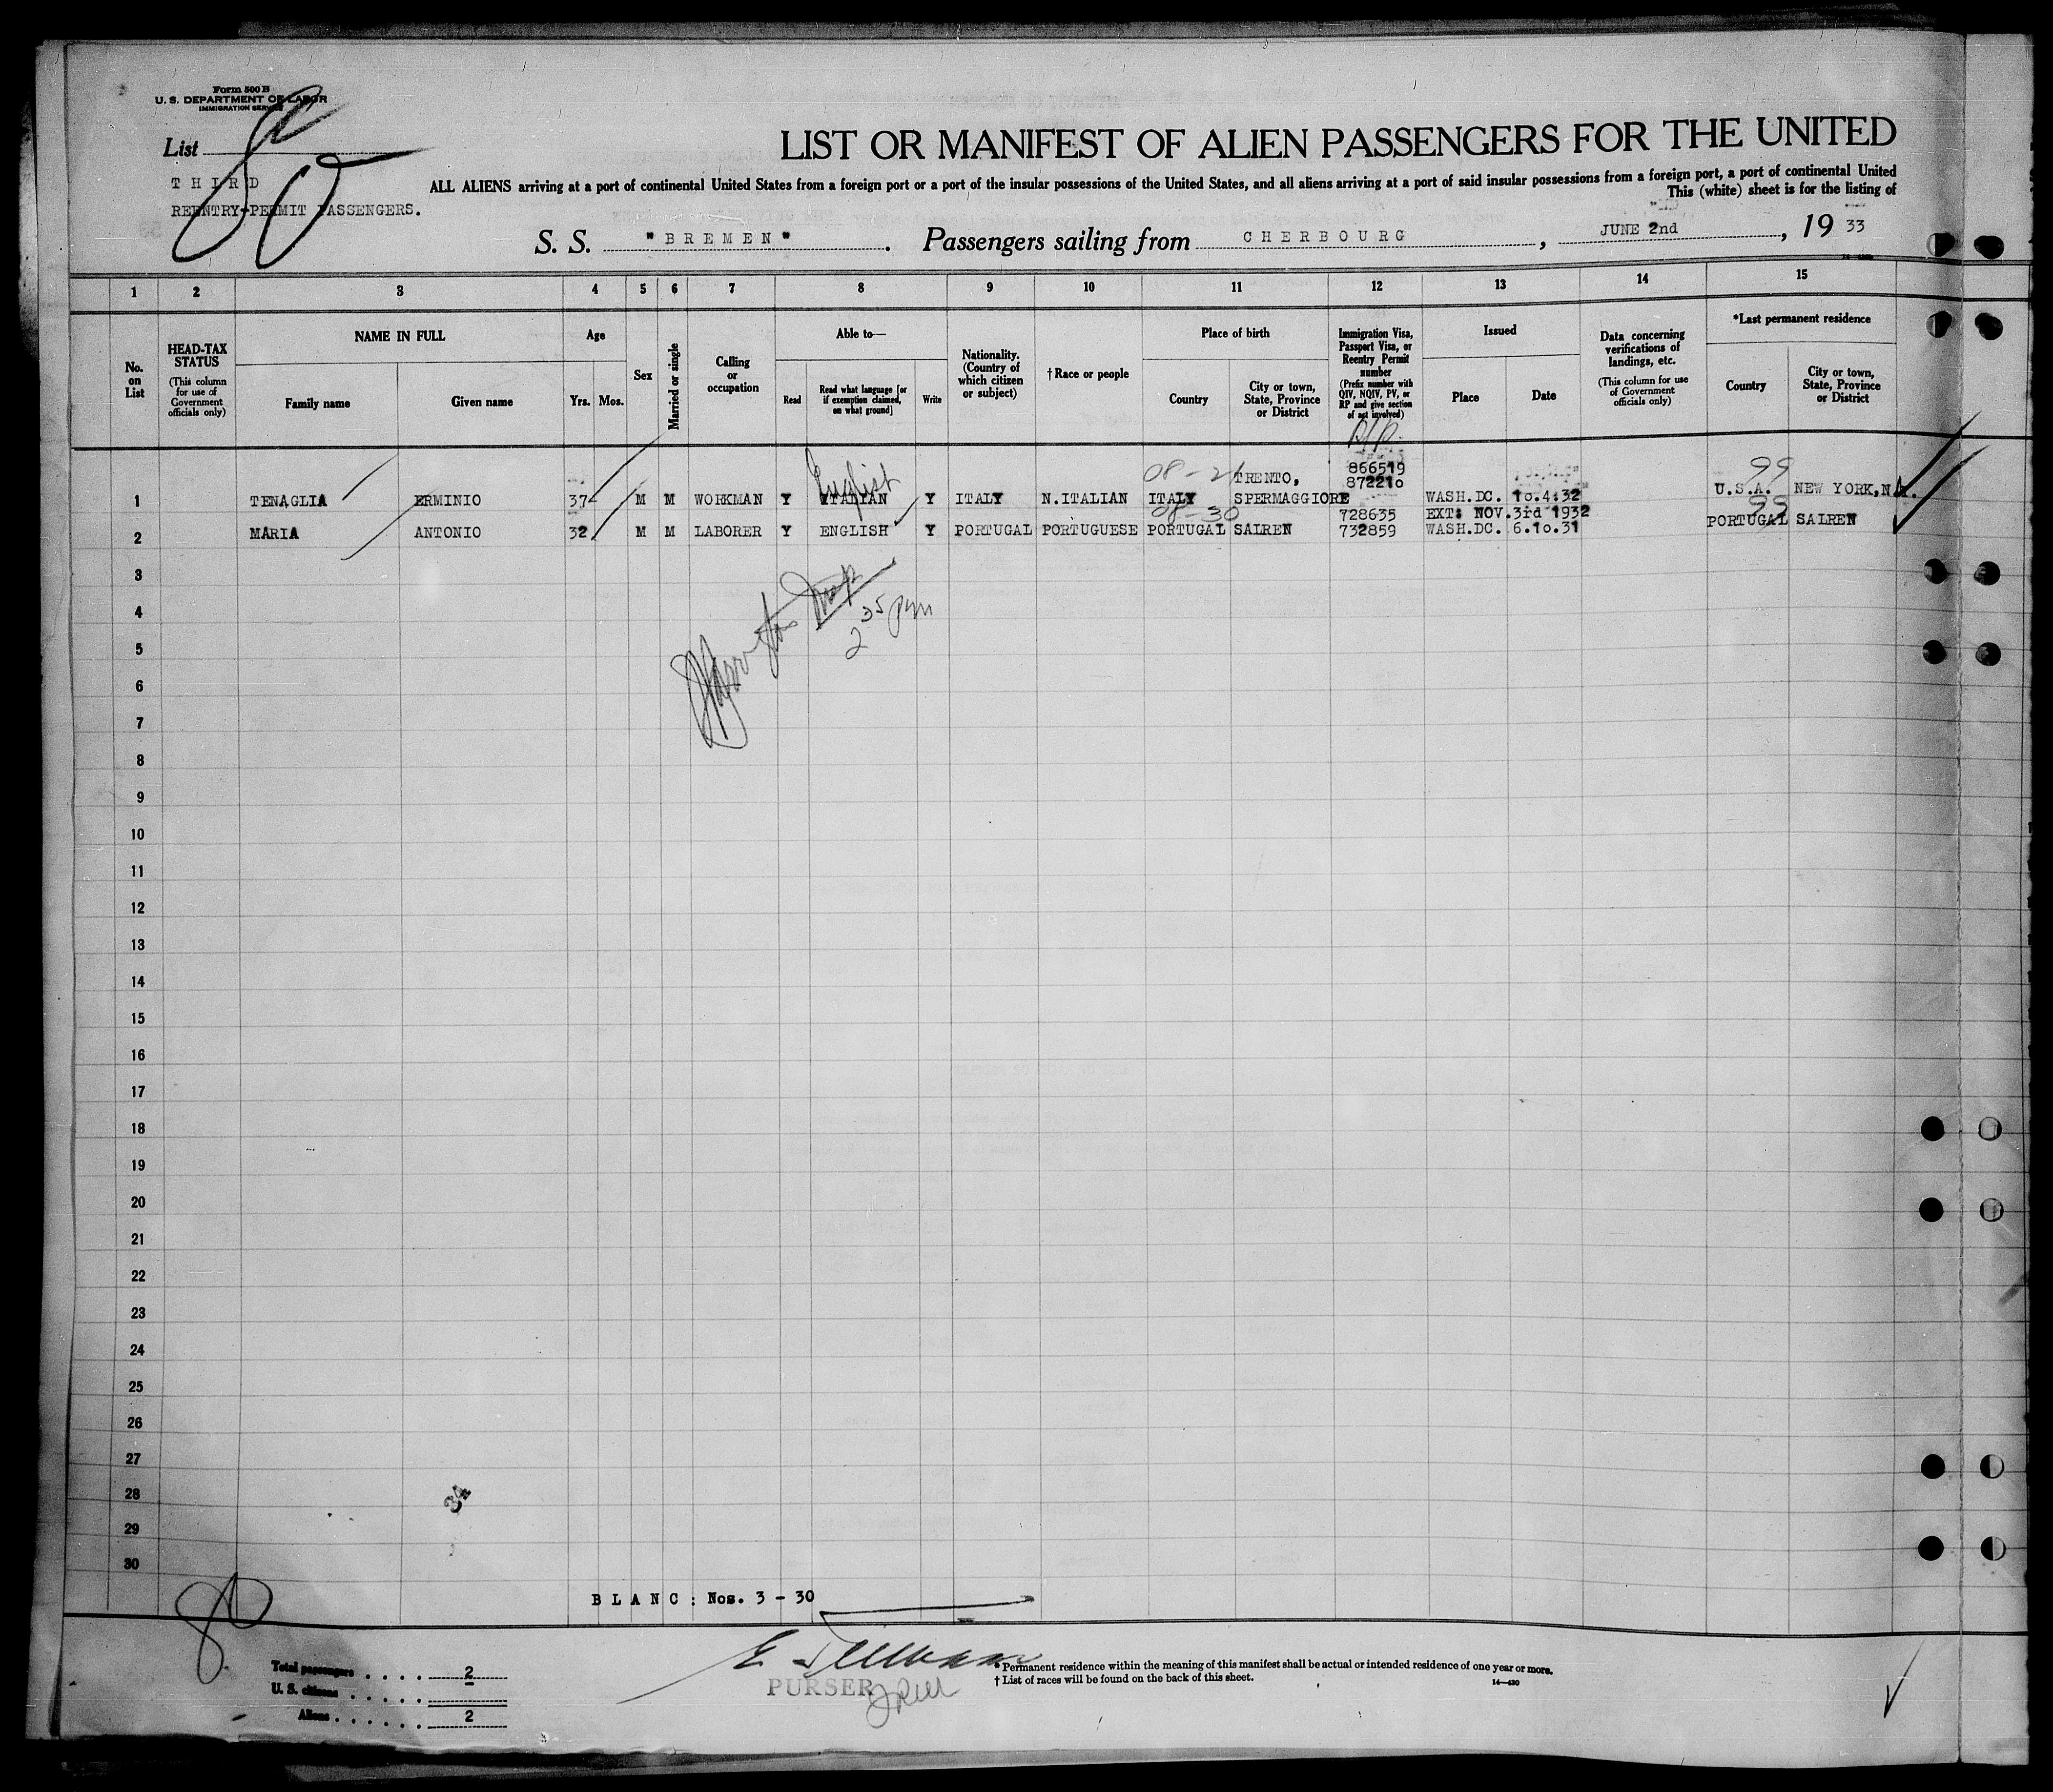 Form 500 B
U. S. DEPARTMENT OF LABOR
IMMIGRATION SERVICE
List
80
THIRD
REENTRY-PERMIT PASSENGERS.
LIST OR MANIFEST OF ALIEN PASSENGERS FOR THE UNITED
ALL ALIENS arriving at a port of continental United States from a foreign port or a port of the insular possessions of the United States, and all aliens arriving at a port of said insular possessions from a foreign port, a port of continental United
This (white) sheet is for the listing of
S. S. "BREMEN". Passengers sailing from CHERBOURG, JUNE 2nd, 1933
1 2 3 4 5 6 7 8 9 10 11 12 13 14 15
No. on List
HEAD-TAX STATUS (This column for use of Government officials only)
NAME IN FULL
Family name
Given name
Age
Yrs.
Mos.
Sex
Married or single
Calling or occupation
Able to—
Read
Read what language [or if exemption claimed, on what ground]
Write
Nationality. (Country of which citizen or subject)
† Race or people
Place of birth
Country
City or town, State, Province or District
Immigration Visa, Passport Visa, or Reentry Permit number (Prefix number with QIV, NQIV, PV, or RP and give section of act involved)
Issued
Place
Date
Data concerning verifications of landings, etc. (This column for use of Government officials only)
*Last permanent residence
Country
City or town, State, Province or District
English 08-21 TRENTO, 866519 99
872210
1 TENAGLIA ERMINIO 37 M M WORKMAN Y ITALIAN Y ITALY N.ITALIAN ITALY SPERMAGGIORE WASH.DC. 10.4.32 U.S.A. NEW YORK,N.Y.
08-30 728635 EXT: NOV.3rd 1932 99
2 MARIA ANTONIO 32 M M LABORER Y ENGLISH Y PORTUGAL PORTUGUESE PORTUGAL SALREN 732859 WASH.DC. 6.10.31 PORTUGAL SALREN
3
4
2 35 pm
5
6
7
8
9
10
11
12
13
14
15
16
17
18
19
20
21
22
23
24
25
26
27
28
34
29
30
BLANC: Nos. 3 - 30
80
Total passengers . . . . 2
U. S. citizens . . . . .
Aliens . . . . . . 2
PURSER
* Permanent residence within the meaning of this manifest shall be actual or intended residence of one year or more.
† List of races will be found on the back of this sheet.
14—430